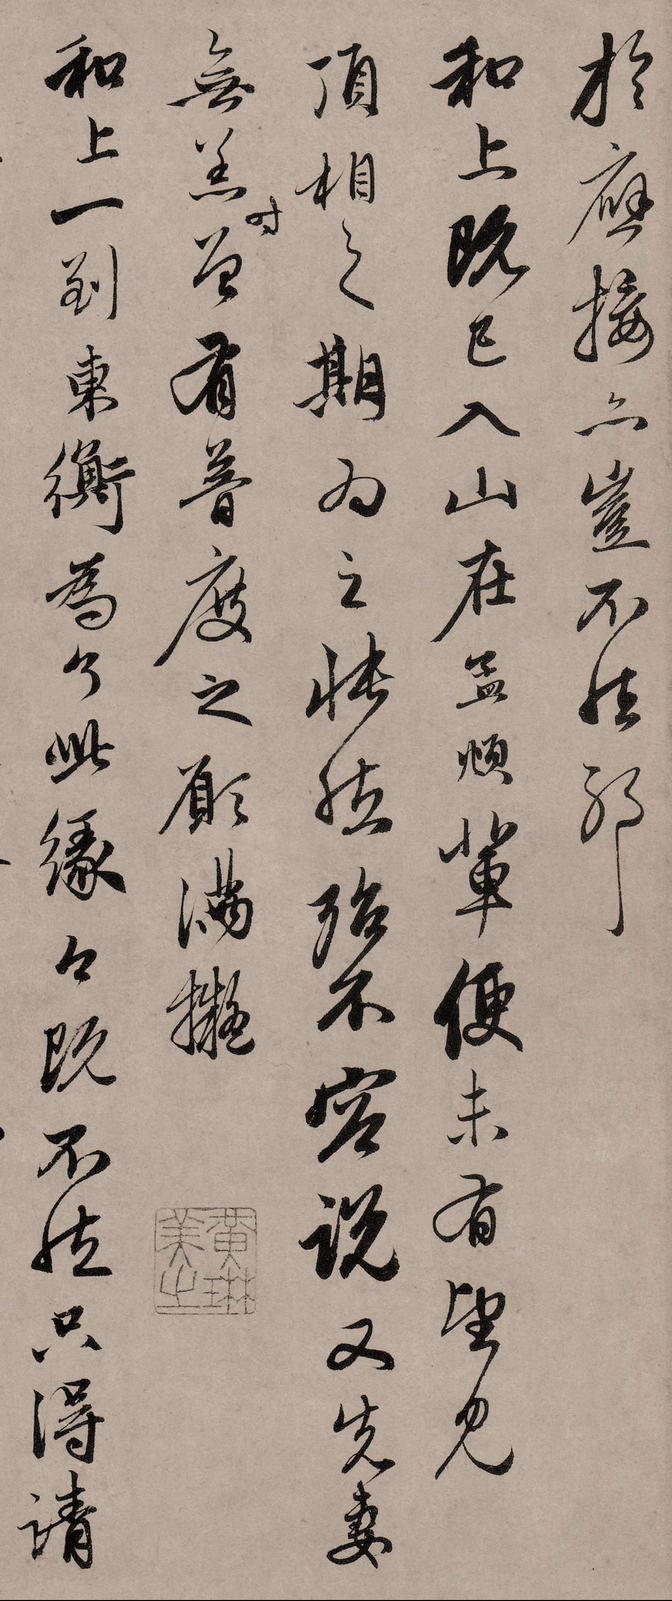 於應接亦豈不能那
和上既已入山在孟頫輩便未有望見
頂相之期為之悵然殆不容說又先妻
無恙時曾有普度之願滿擬
和上一到東衡為了此緣今既不然只得請
黃琳美之